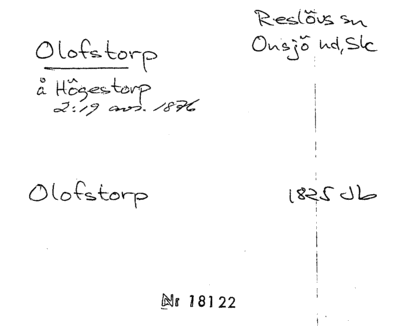 Reslövs sn
Olofstorp Onsjö hd, Skc
å Högestorp
2:19 avs. 1876
Olofstorp 1825 Jb
Nr 18122